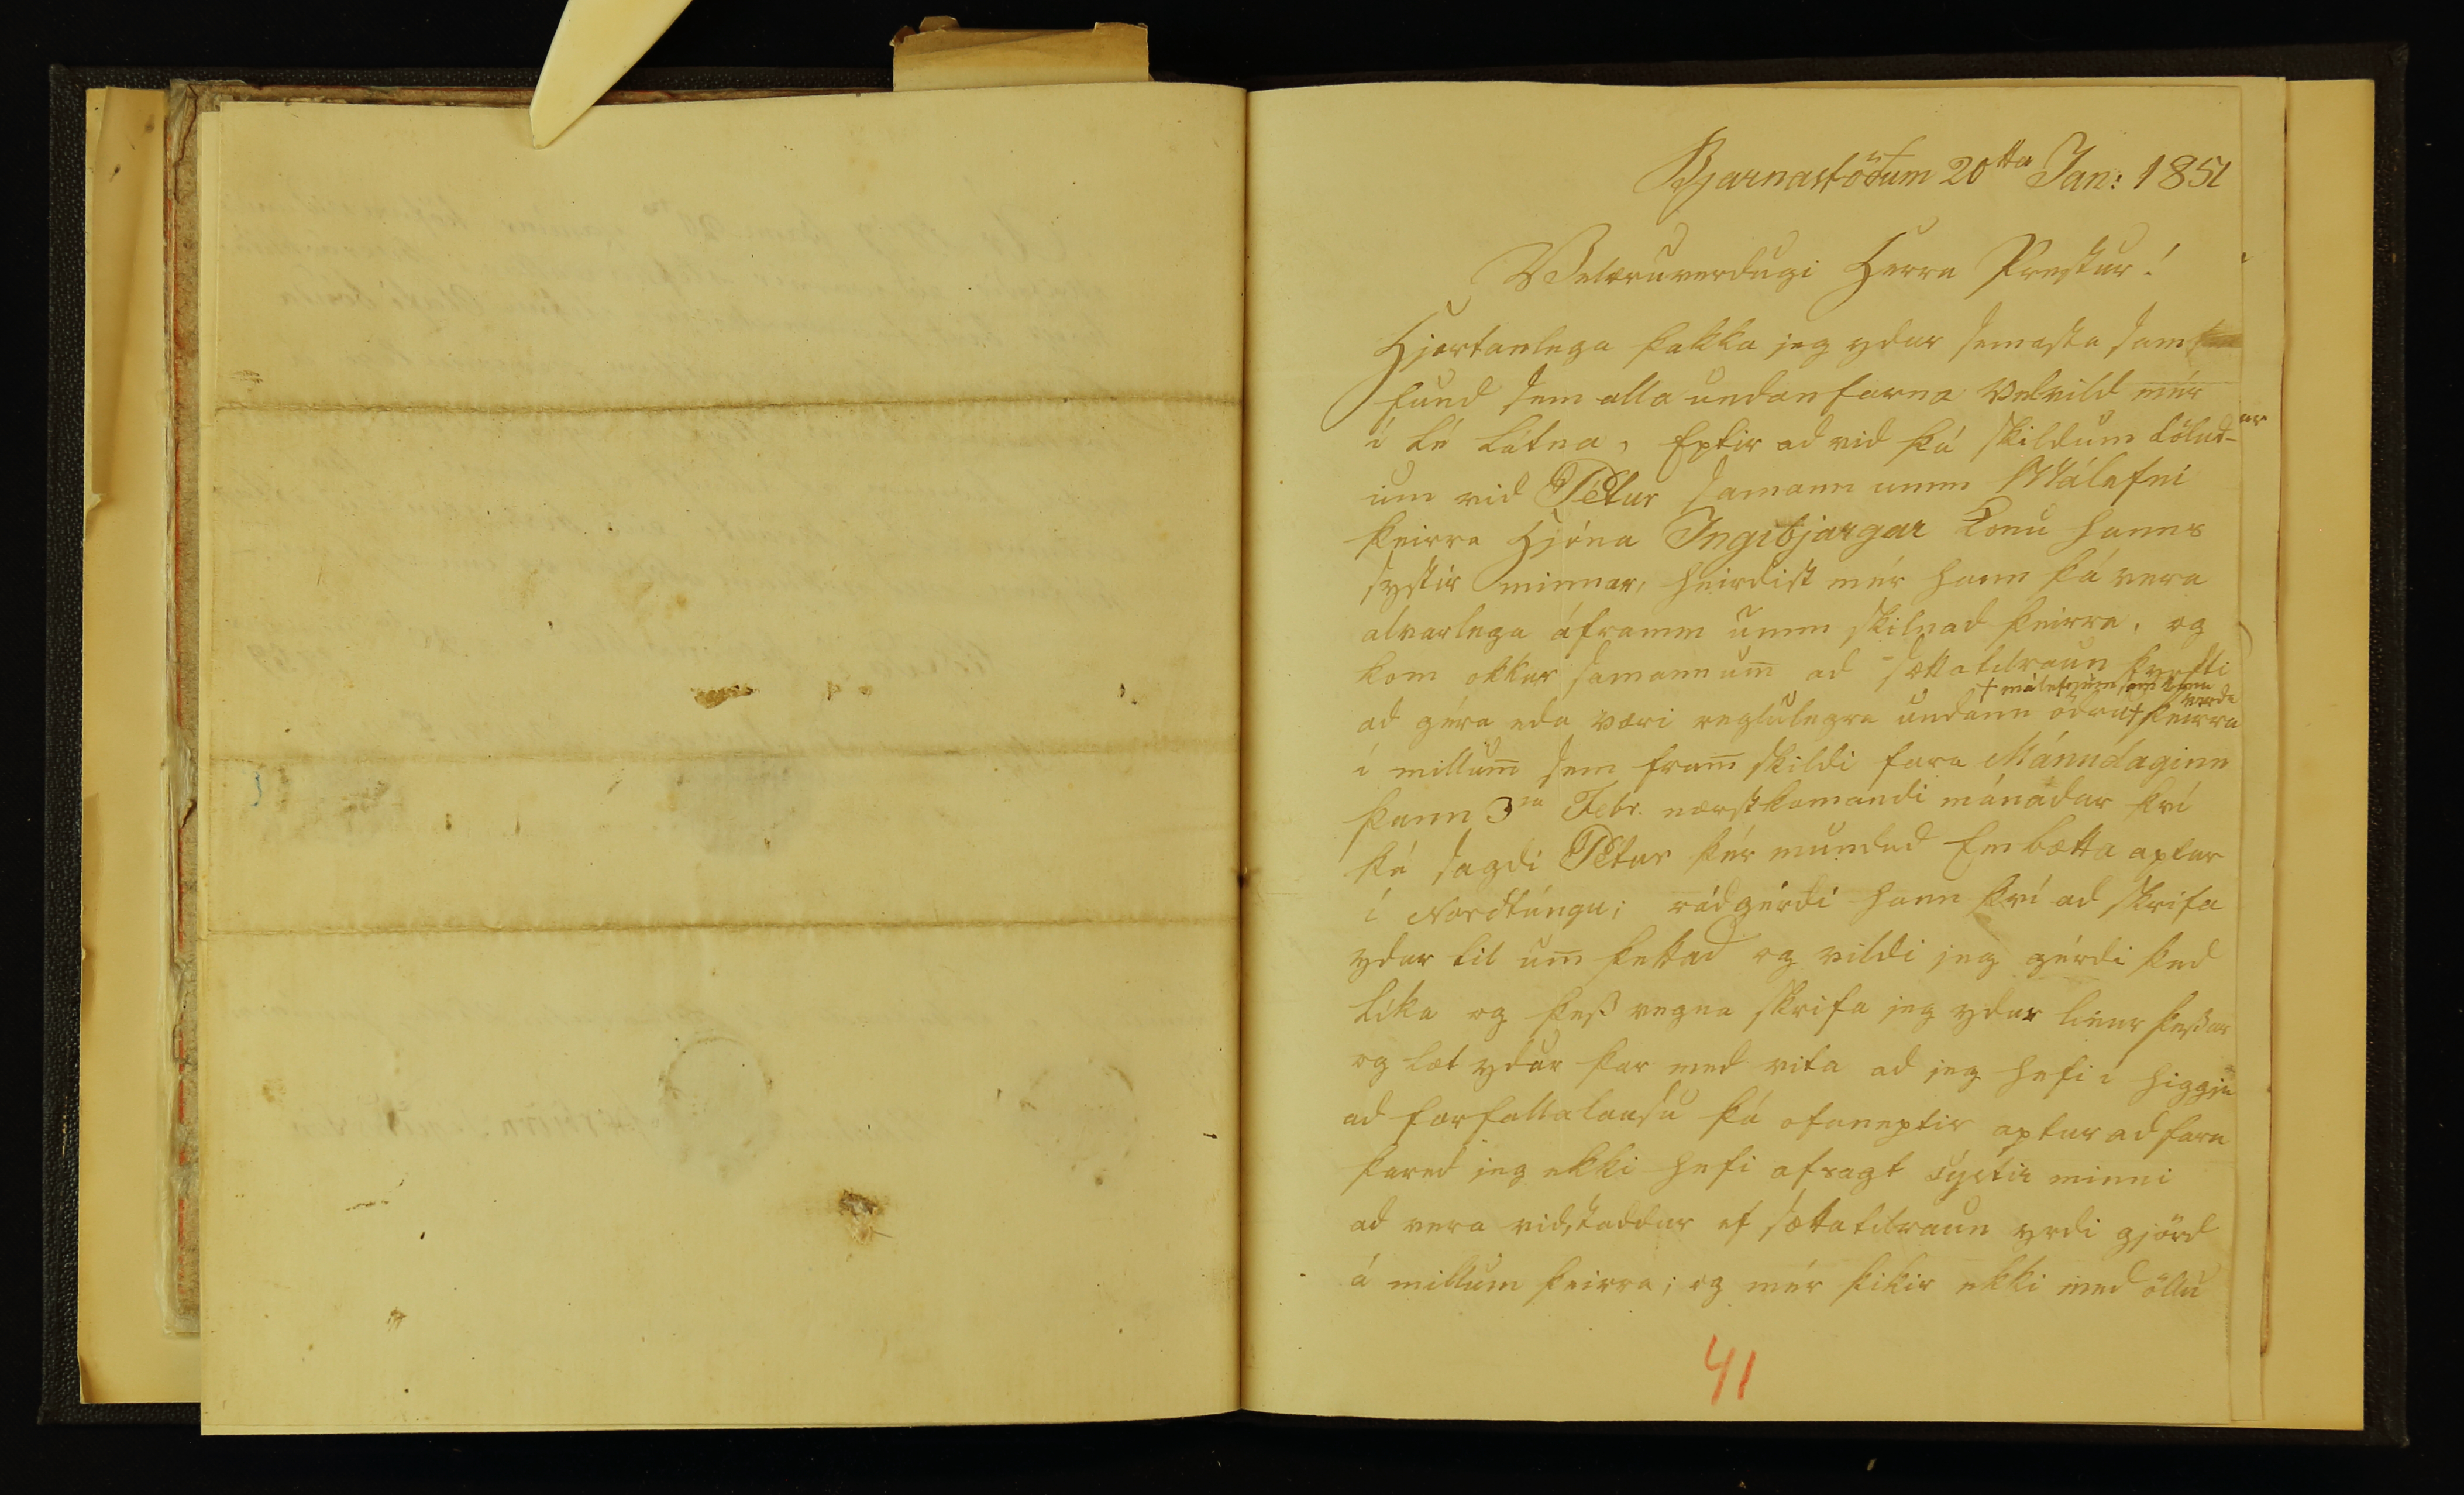 Bjarnastödum 20tta Jan: 1851
Velæruverdugi Herra Prestur!
Hjartanlega þakka jeg ydur semasta sam
fund sem alla undanfarna velvild mér
i té látna, Eptir ad vid þá skildum tölud-
um vid Pétur samann umm Málefni
þeirra Hjóna Ingibjargar konu hanns
systir minnar, heirdist mér hann þá vera
alvarlega áframm umm skilnad þeirra, og
kom okkur samann um̅ ad sættatilraun þyrfti
+ málefnum sem kunna verda
ad géra eda væri reglulegra undann ödru+ þeirra
i millum̅ sem fram̅ skildi fara Mánudaginn
þann 3ia Febr. næstkomandi mánadar því
þá sagdi Pétur þér mundud Embætta aptur
í Nordtúngu; rádgérdi hann því ad skrifa
ydur til um̅ þettad og vildi jeg gérdi þad
líka og þess vegna skrifa jeg ydur linur þessar
og læt ydur þar med vita ad jeg hefi i higgju
ad forfallalausu þá ofaneptir aptur ad fara
þared jeg ekki hefi afsagt systir minni
ad vera vidstaddur ef sættatilraun yrdi gjörd
á millum þeirra; og mér þikir ekki med öllu
41